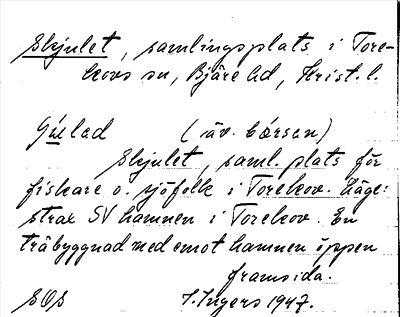 Skjulet, samlingsplats i Tore-
kovs sn, Bjäre hd, Krist. l.
(äv. börsen)
Skjulet, saml. plats för
fiskare o. sjöfolk i Torekov. Läge:
strax SV hamnen i Torekov. En
träbyggnad med emot hamnen öppen
framsida.
S. Ingers 1947.